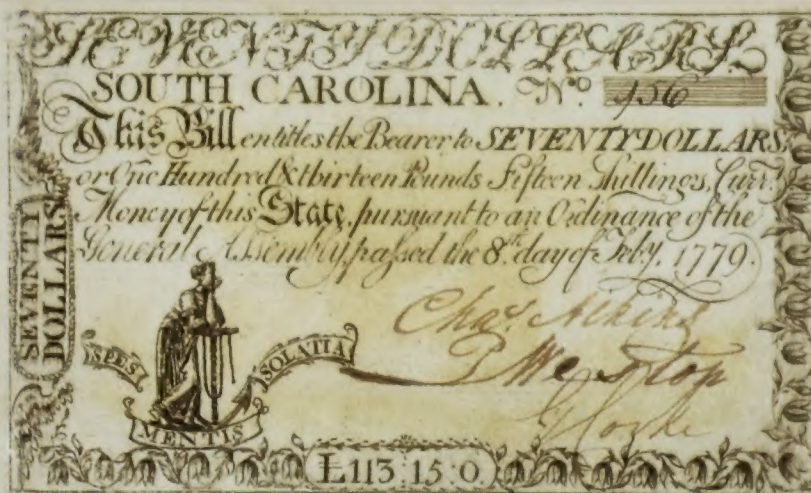 SEVENTY DOLLARS.
SOUTH CAROLINA. No.
This Bill entitles the Bearer to SEVENTY DOLLARS,
or One Hundred & thirteen Pounds Fifteen Shillings, Curr.t
Money of this State, pursuant to an Ordinance of the
General Assembly, passed the 8th. day of Feby. 1779.
SEVENTY
DOLLARS
SPES
MENTIS
SOLATIA
Chas. Atkins
£113:15:0